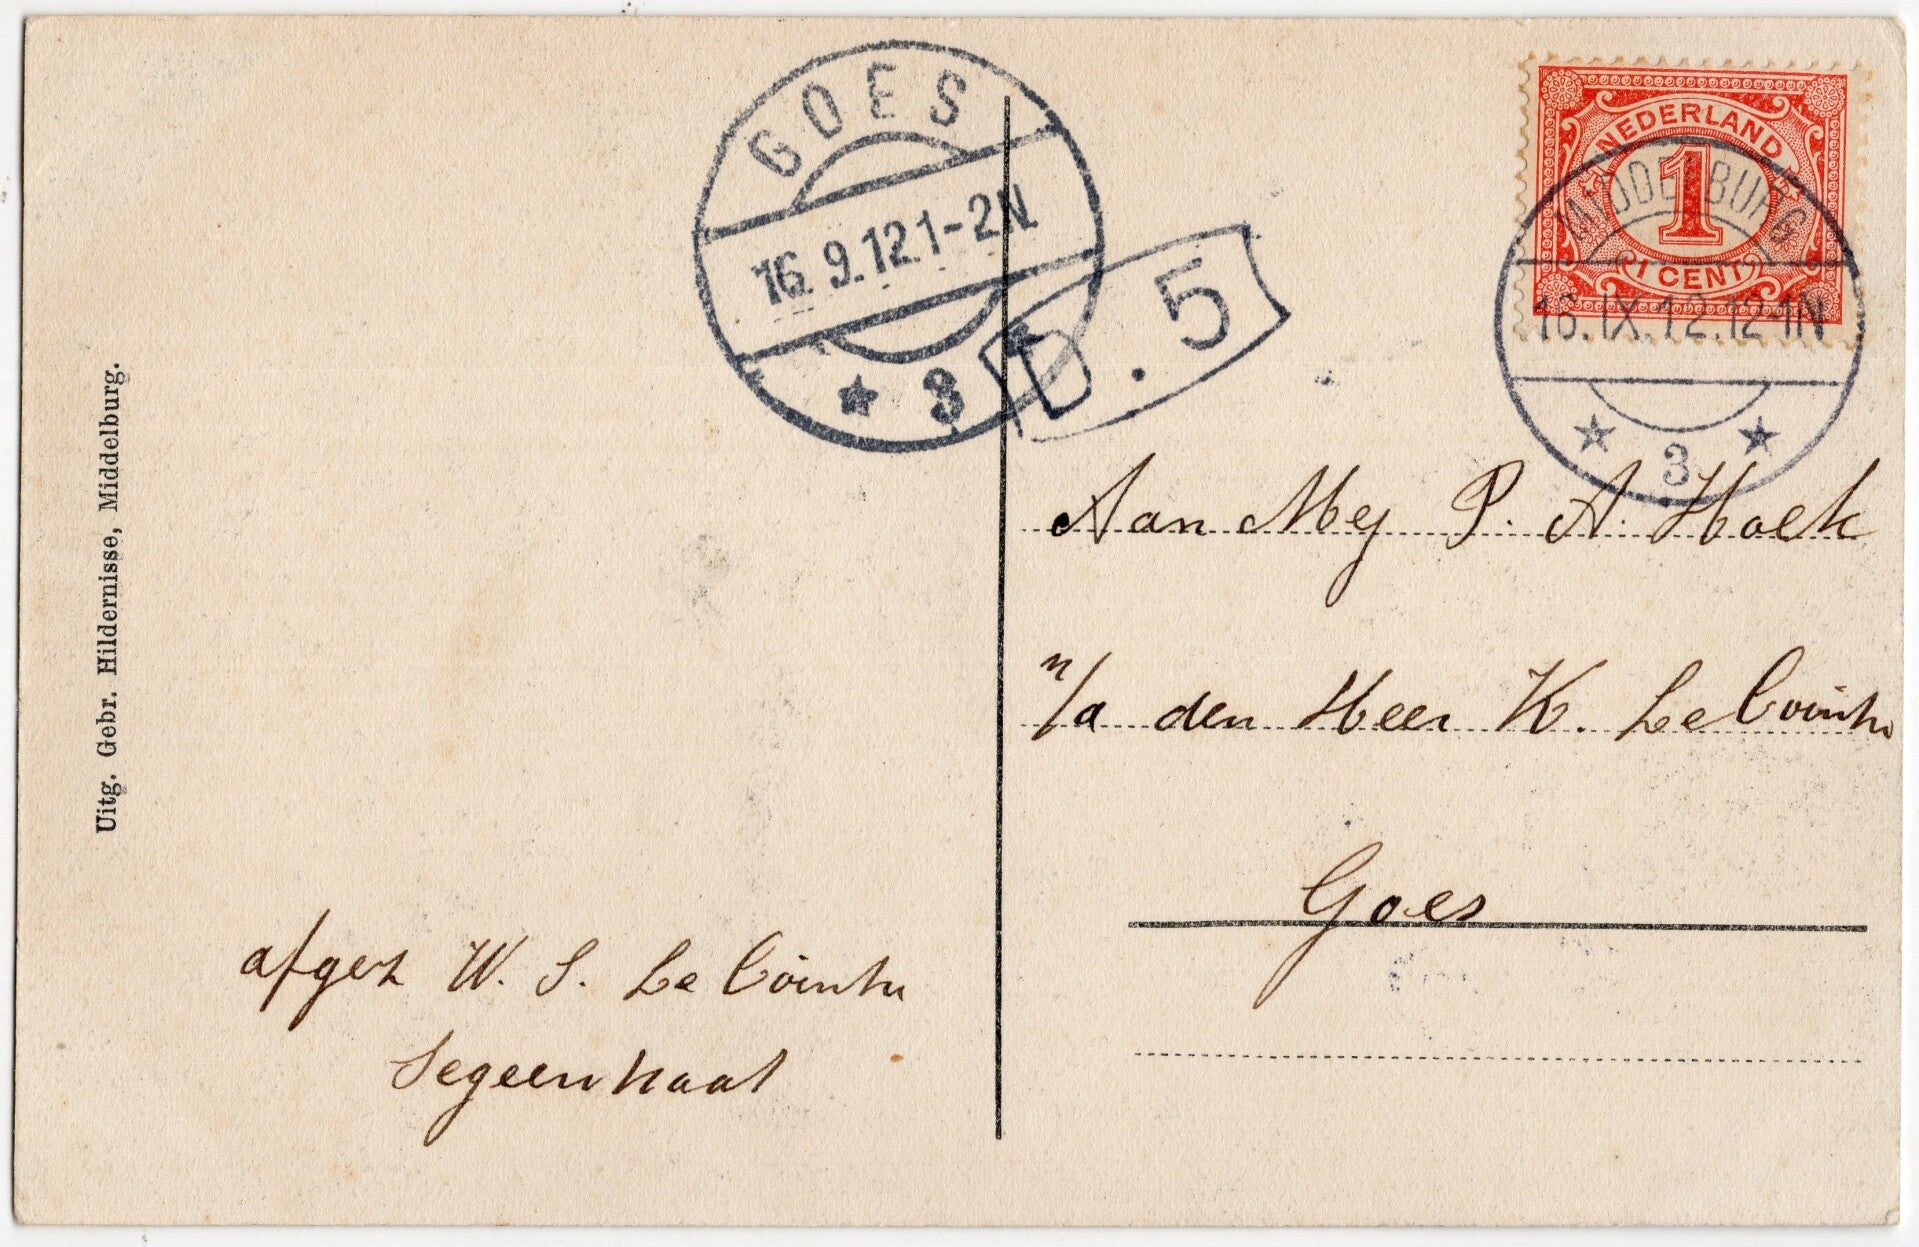 GOES
16. 9.12 1-2N
3
D. 5
NEDERLAND
1
1 CENT
MIDDELBURG
16.IX.12.12-1N
3
Aan Mej P. A. Hoek
p/a den Heer K. Le Cointre
Goes
Uitg. Gebr. Hildernisse, Middelburg.
afgez W. S. Le Cointre